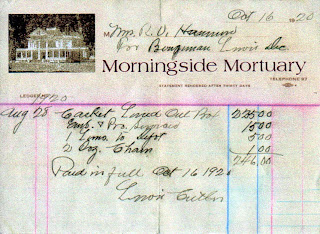 Oct 16 1920
M Mrs. R. V.
for Bengiman Dec
Morningside Mortuary
TELEPHONE 57
STATEMENT RENDERED AFTER THIRTY DAYS
LEDGER
1920
Aug 28 Casket Lined Out Box 225 00
Emb. & Pro. Services 15 00
1 to Dept 5 00
2 Doz. Chairs 1 00
246.00
Paid in full Oct 16 1920